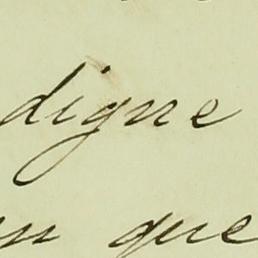 digne
que